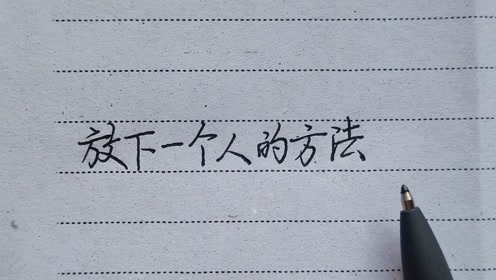 放下一个人的方法